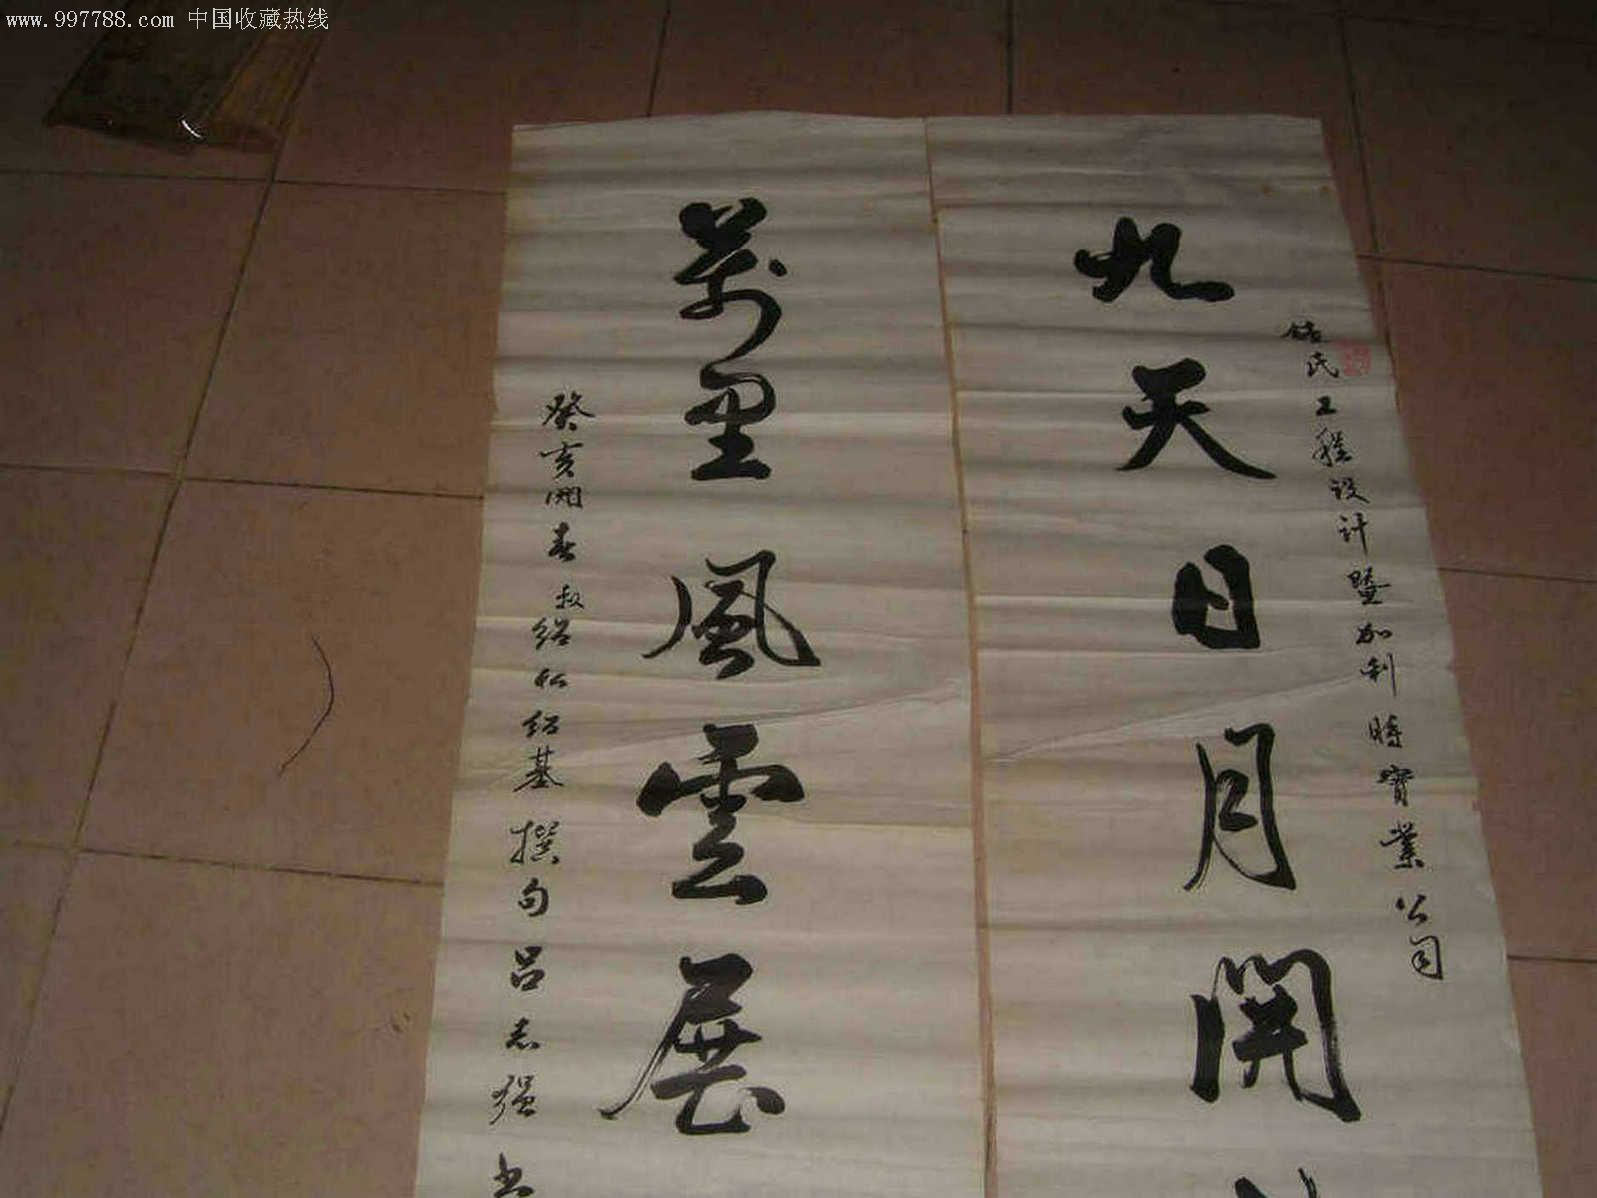 www.997788.com 中国收藏热线
九天日月開
氏工程设计暨加利時實業公司
萬里風雲展
癸亥開春叔绍仁绍基撰句吕志强书